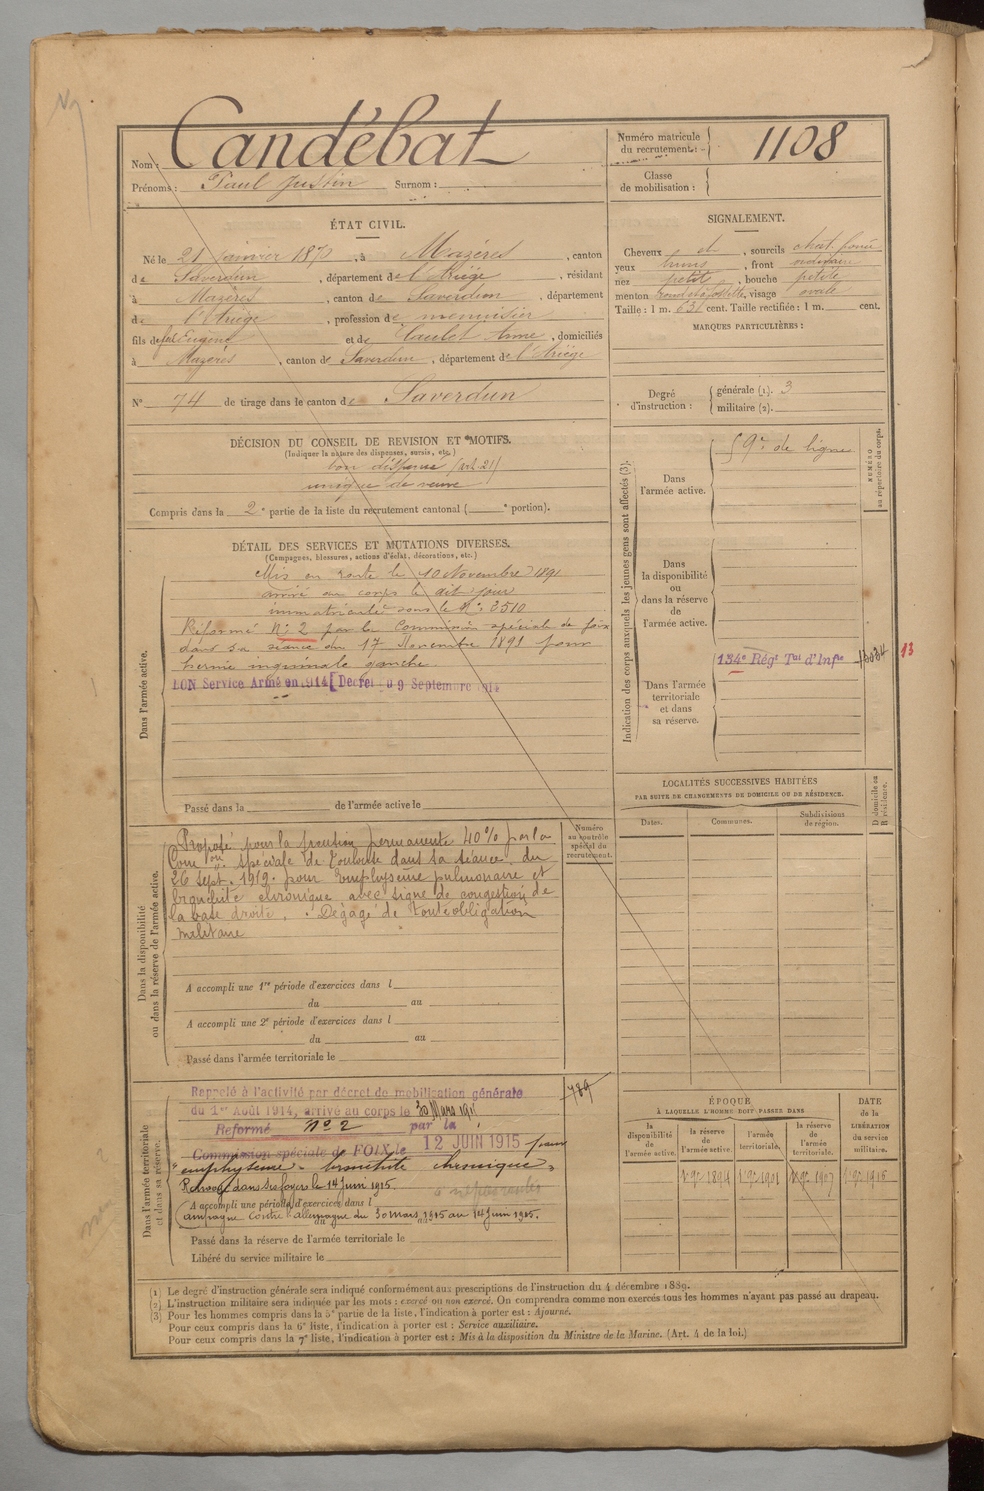 Nom : Candébat
Prénoms : Paul Justin Surnom :
Numéro matricule
du recrutement :
1108
Classe
de mobilisation :
ÉTAT CIVIL.
Né le 21 janvier 1870, à Mazères, canton
de Saverdun, département de l'Ariège, résidant
à Mazères, canton de Saverdun, département
de l'Ariège, profession de menuisier
fils de feu Eugène et de Anne, domiciliés
à Mazères, canton de Saverdun, département de l'Ariège
N° 74 de tirage dans le canton de Saverdun
SIGNALEMENT.
Cheveux et, sourcils chat. foncé
yeux bruns, front ordinaire
nez petit, bouche petite
menton rond et à fossette, visage ovale
Taille : 1 m. 63 cent. Taille rectifiée : 1 m. cent.
MARQUES PARTICULIÈRES :
Degré
d'instruction :
générale (1). 3
militaire (2).
DÉCISION DU CONSEIL DE REVISION ET MOTIFS.
(Indiquer la nature des dispenses, sursis, etc.)
bon dispensé (art. 21)
unique de veuve
Compris dans la 2e partie de la liste du recrutement cantonal ( e portion).
DÉTAIL DES SERVICES ET MUTATIONS DIVERSES.
(Campagnes, blessures, actions d'éclat, décorations, etc.)
Dans l'armée active.
Mis en route le 10 Novembre 1891
arrivé au corps le dit jour
immatriculé sous le N° 3510
Réformé N° 2 par la Commission spéciale de foix
dans sa séance du 17 Novembre 1891 pour
hernie inguinale gauche
BON Service Armé en 1914 [Décret du 9 Septembre 1914
Passé dans la de l'armée active le
Indication des corps auxquels les jeunes gens sont affectés (3).
NUMÉRO
au répertoire du corps.
Dans
l'armée active.
59e de ligne
Dans
la disponibilité
ou
dans la réserve
de
l'armée active.
Dans l'armée
territoriale
et dans
sa réserve.
134e Régt Tal d'Infie
13
LOCALITÉS SUCCESSIVES HABITÉES
PAR SUITE DE CHANGEMENTS DE DOMICILE OU DE RÉSIDENCE.
Dates.
Communes.
Subdivisions
de région.
D domicile ou
R résidence.
Dans la disponibilité
ou dans la réserve de l'armée active.
Numéro
au contrôle
spécial du
recrutement.
Proposé pour la pension permanente 40% par la
Comon spéciale de Toulouse dans sa séance du
26 sept. 1919. pour Emphysème pulmonaire et
bronchite chronique avec signe de congestion de
la base droite. Dégagé de toute obligation
militaire
A accompli une 1re période d'exercices dans l
du au
A accompli une 2e période d'exercices dans l
du au
Passé dans l'armée territoriale le
Dans l'armée territoriale
et dans sa réserve.
Rappelé à l'activité par décret de mobilisation générale
du 1er Août 1914, arrivé au corps le 30 Mars 1915
Réformé N° 2 par la
Commission spéciale de FOIX le 12 JUIN 1915 pour
"emphysème - bronchite chronique"
Renvoyé dans ses foyers le 14 Juin 1915.
A accompli une période d'exercices dans l
Campagne contre l'allemagne du 30 mars 1915 au 14 Juin 1915.
Passé dans la réserve de l'armée territoriale le
Libéré du service militaire le
789
ÉPOQUE
À LAQUELLE L'HOMME DOIT PASSER DANS
la
disponibilité
de
l'armée active.
la réserve
de
l'armée active.
l'armée
territoriale.
la réserve
de
l'armée
territoriale.
DATE
de la
LIBÉRATION
du service
militaire.
1894 1901 1907 1916
(1) Le degré d'instruction générale sera indiqué conformément aux prescriptions de l'instruction du 4 décembre 1889.
(2) L'instruction militaire sera indiquée par les mots : exercé ou non exercé. On comprendra comme non exercés tous les hommes n'ayant pas passé au drapeau.
(3) Pour les hommes compris dans la 5e partie de la liste, l'indication à porter est : Ajourné.
Pour ceux compris dans la 6e liste, l'indication à porter est : Service auxiliaire.
Pour ceux compris dans la 7e liste, l'indication à porter est : Mis à la disposition du Ministre de la Marine. (Art. 4 de la loi.)